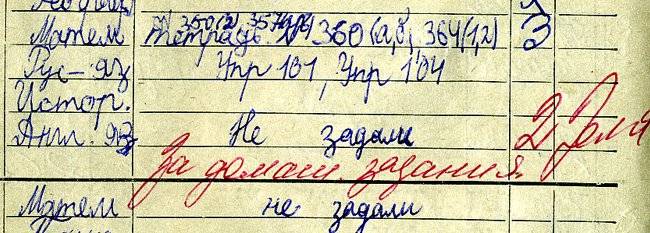 Матем Тетрадь. N 360(а,б), 364(1,2) 3
Рус-яз Упр 101, Упр 104
Истор.
Англ. яз Не задали 2
За домаш. задания.
Матем не задали